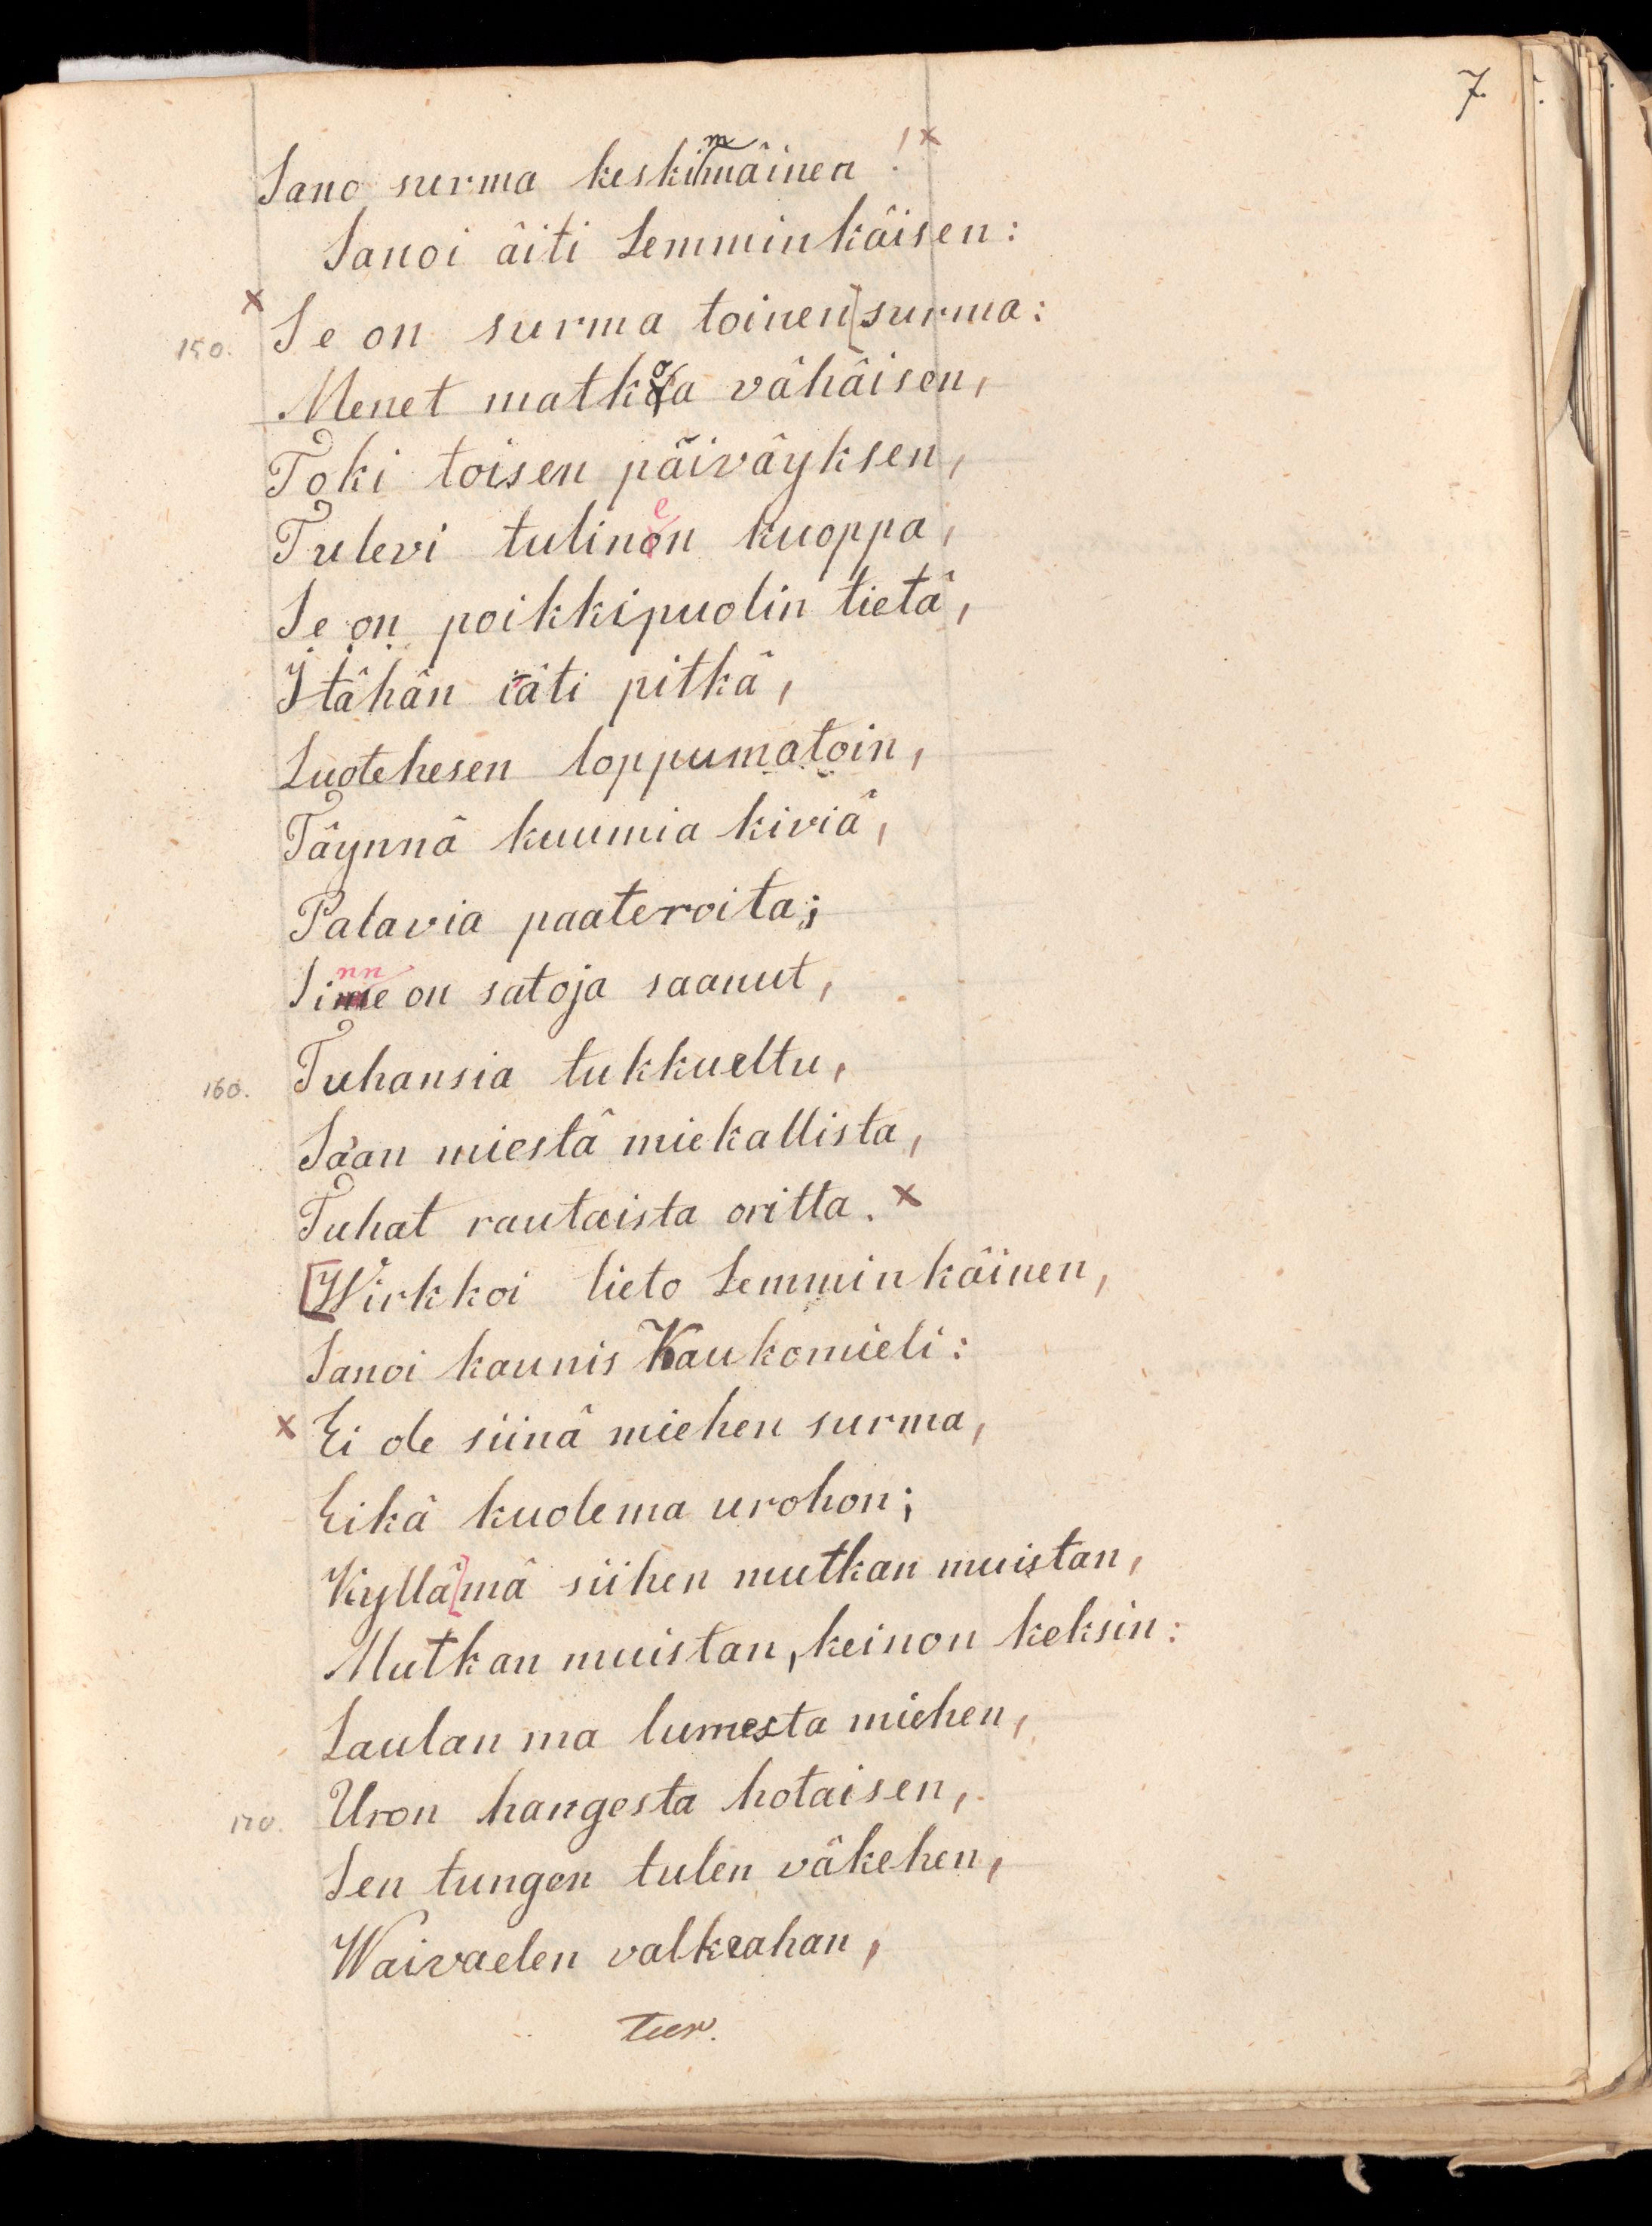 7.
Sano surma keskimmäinen!
Sanoi äiti Lemminkäisen:
150. Se on surma toinen surma:
Menet matkoa vähäisen,
Toki toisen päiväyksen,
Tulevi tulinen kuoppa,
Se on poikkipuolin tietä,
Itähän iäti pitkä,
Luotehesen loppumatoin,
Täynnä kuumia kiviä,
Palavia paateroita;
Sinne on satoja saanut,
160. Tuhansia tukkueltu,
Sa'an miestä miekallista,
Tuhat rautaista oritta.
[Wirkkoi lieto Lemminkäinen,
Sanoi kaunis Kaukomieli:
Ei ole siinä miehen surma,
Eikä kuolema urohon;
Kyllä mä siihen mutkan muistan,
Mutkan muistan, keinon keksin:
Laulan ma lumesta miehen,
170. Uron hangesta hotaisen,
Sen tungen tulen väkehen,
Waivaelen valkeahan,